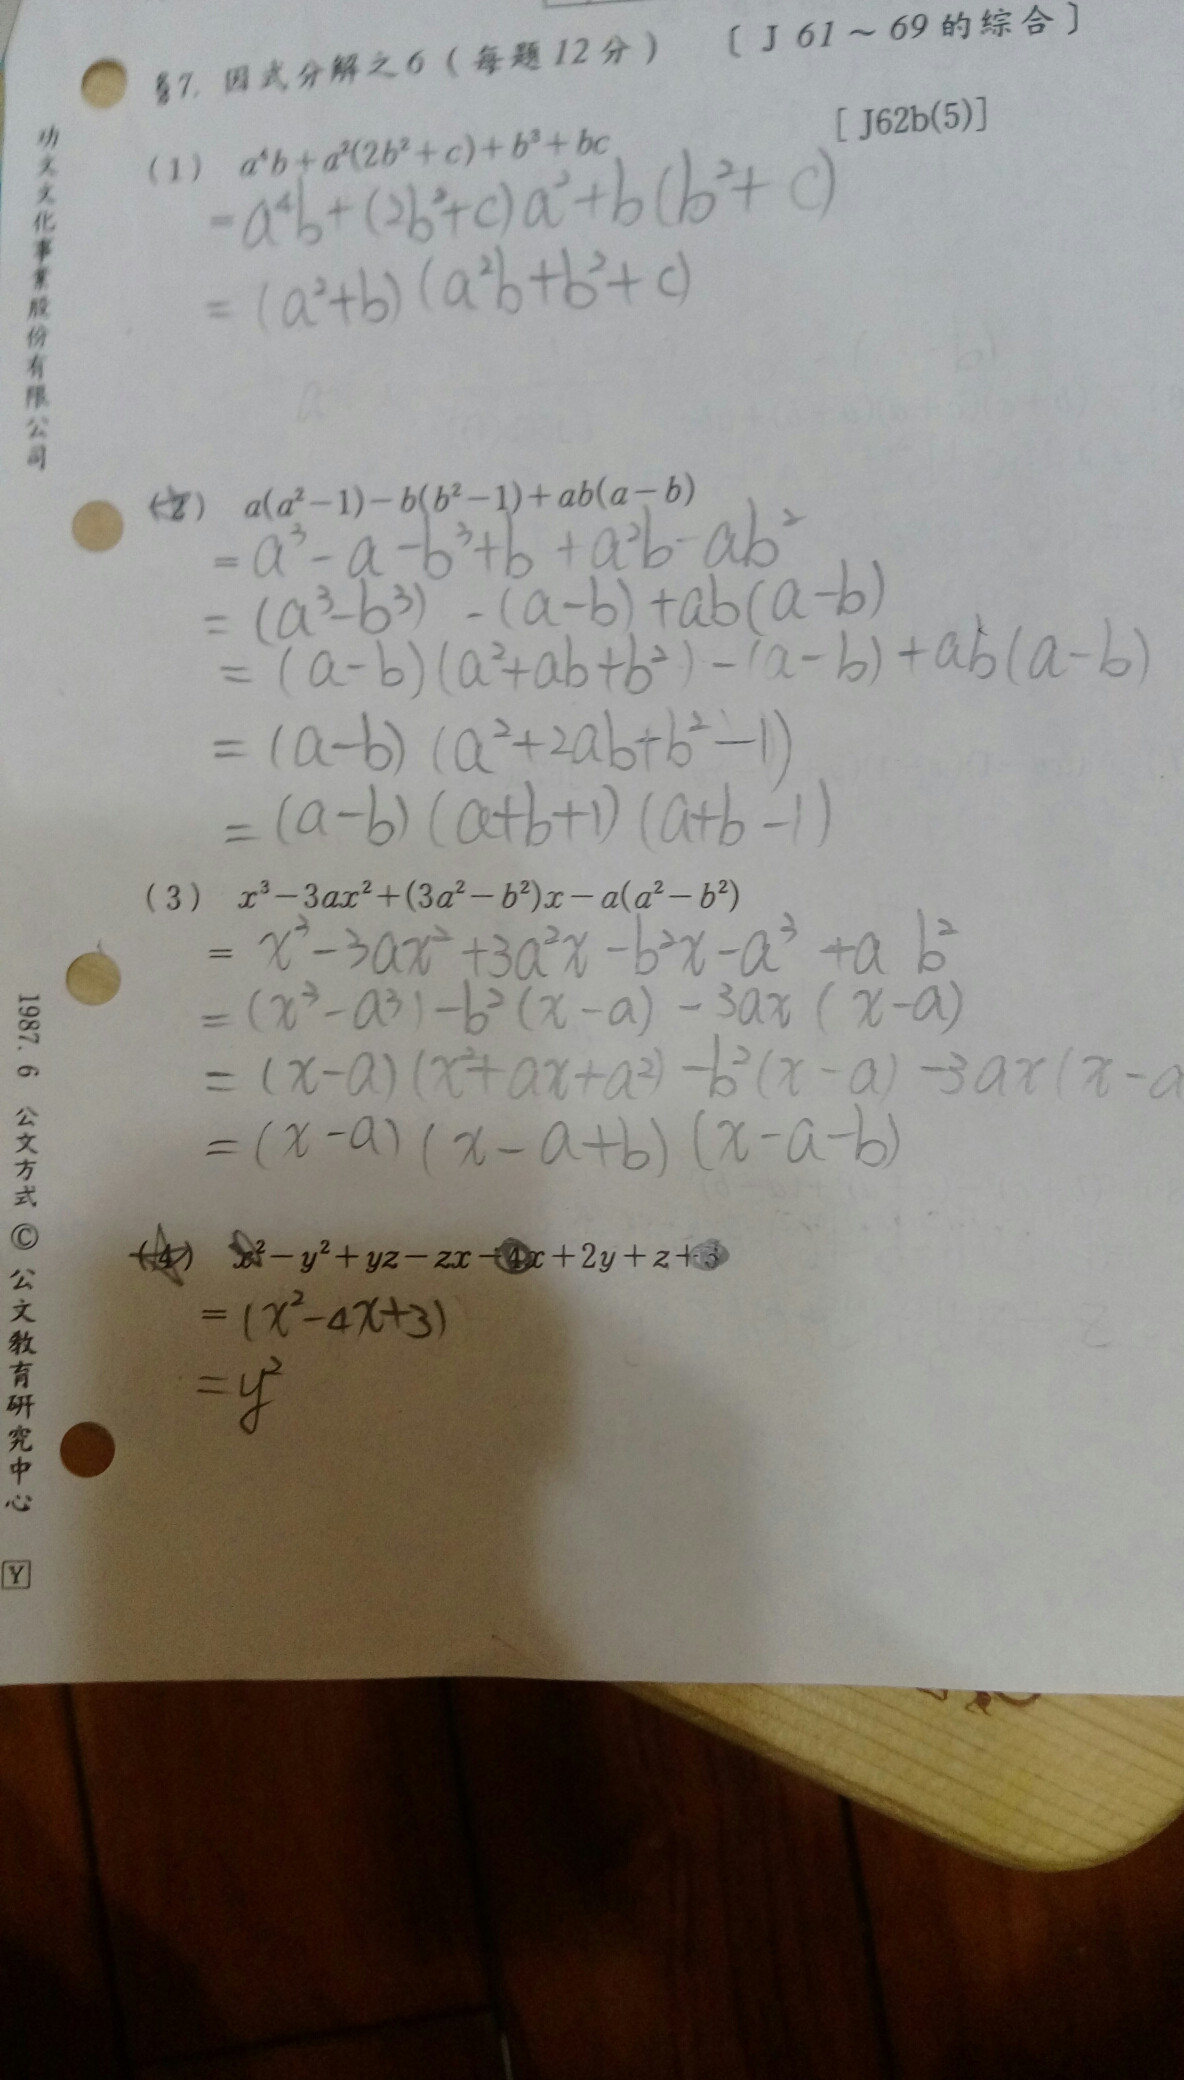 §7. 因式分解之6 ( 每題12分 ) 〔 J 61～69的綜合 〕
(1) a⁴b+a²(2b²+c)+b³+bc [ J62b(5)]
= a⁴b+(2b²+c)a²+b(b²+c)
= (a²+b)(a²b+b²+c)
(2) a(a²−1)−b(b²−1)+ab(a−b)
= a³-a-b³+b+a²b-ab²
= (a³-b³) -(a-b)+ab(a-b)
= (a-b)(a²+ab+b²)-(a-b)+ab(a-b)
= (a-b)(a²+2ab+b²-1)
= (a-b)(a+b+1)(a+b-1)
(3) x³−3ax²+(3a²−b²)x−a(a²−b²)
= x³-3ax²+3a²x-b²x-a³+a b²
= (x³-a³)-b²(x-a)-3ax(x-a)
= (x-a)(x²+ax+a²)-b²(x-a)-3ax(x-a
= (x-a)(x-a+b)(x-a-b)
(4) x²−y²+yz−zx−4x+2y+z+3
= (x²-4x+3)
= y²
功文文化事業股份有限公司
1987. 6 公文方式 © 公文教育研究中心 Y